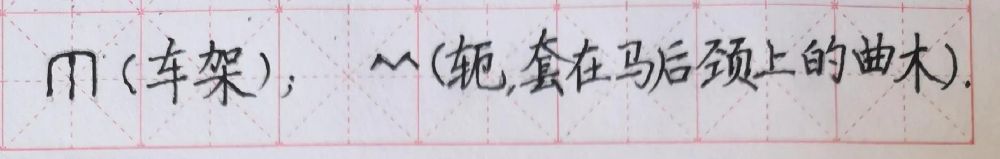 (车架); (轭,套在马后颈上的曲木).